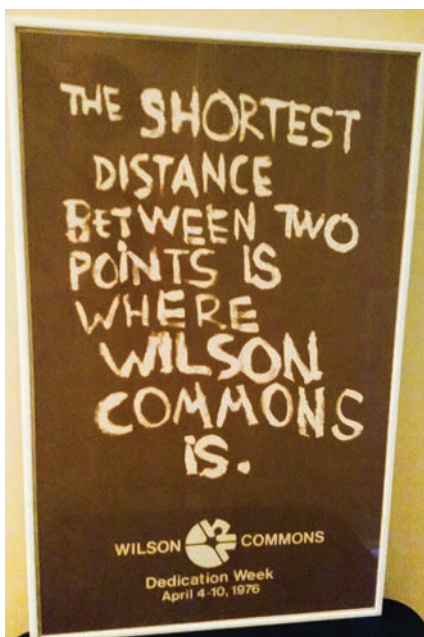 THE SHORTEST
DISTANCE
BETWEEN TWO
POiNTS IS
WHERE
WILSON
COMMONS
iS.
WILSON COMMONS
Dedication Week
April 4-10, 1976